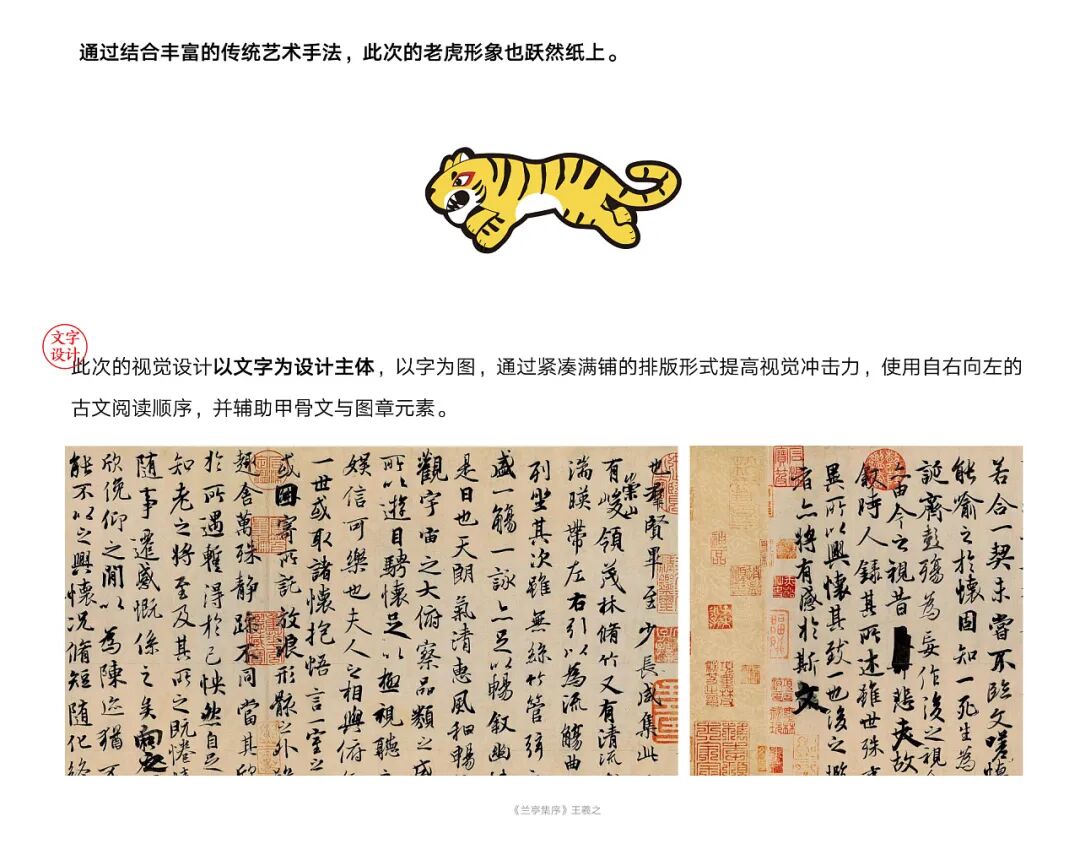 通过结合丰富的传统艺术手法，此次的老虎形象也跃然纸上。
文字
设计
此次的视觉设计以文字为设计主体，以字为图，通过紧凑满铺的排版形式提高视觉冲击力，使用自右向左的
古文阅读顺序，并辅助甲骨文与图章元素。
也羣賢畢至少長咸集此
有崇山峻領茂林脩竹又有清流
湍暎帶左右引以為流觴曲
列坐其次雖無絲竹管弦
盛一觴一詠亦足以暢叙幽
是日也天朗氣清惠風和暢
觀宇宙之大俯察品類之盛
所以遊目騁懷足以極視聽
娛信可樂也夫人之相與俯
一世或取諸懷抱悟言一室之
或因寄所託放浪形骸之外
趣舍萬殊靜躁不同當其欣
於所遇暫得於己怏然自足
知老之將至及其所之既惓
隨事遷感慨係之矣向之
欣俛仰之閒以為陳迹猶不
能不以之興懷況脩短隨化終
若合一契未嘗不臨文嗟悼
能喻之於懷固知一死生為
誕齊彭殤為妄作後之視
由今之視昔悲夫故
叙時人錄其所述雖世殊
異所以興懷其致一也後之
者亦將有感於斯文
《兰亭集序》王羲之